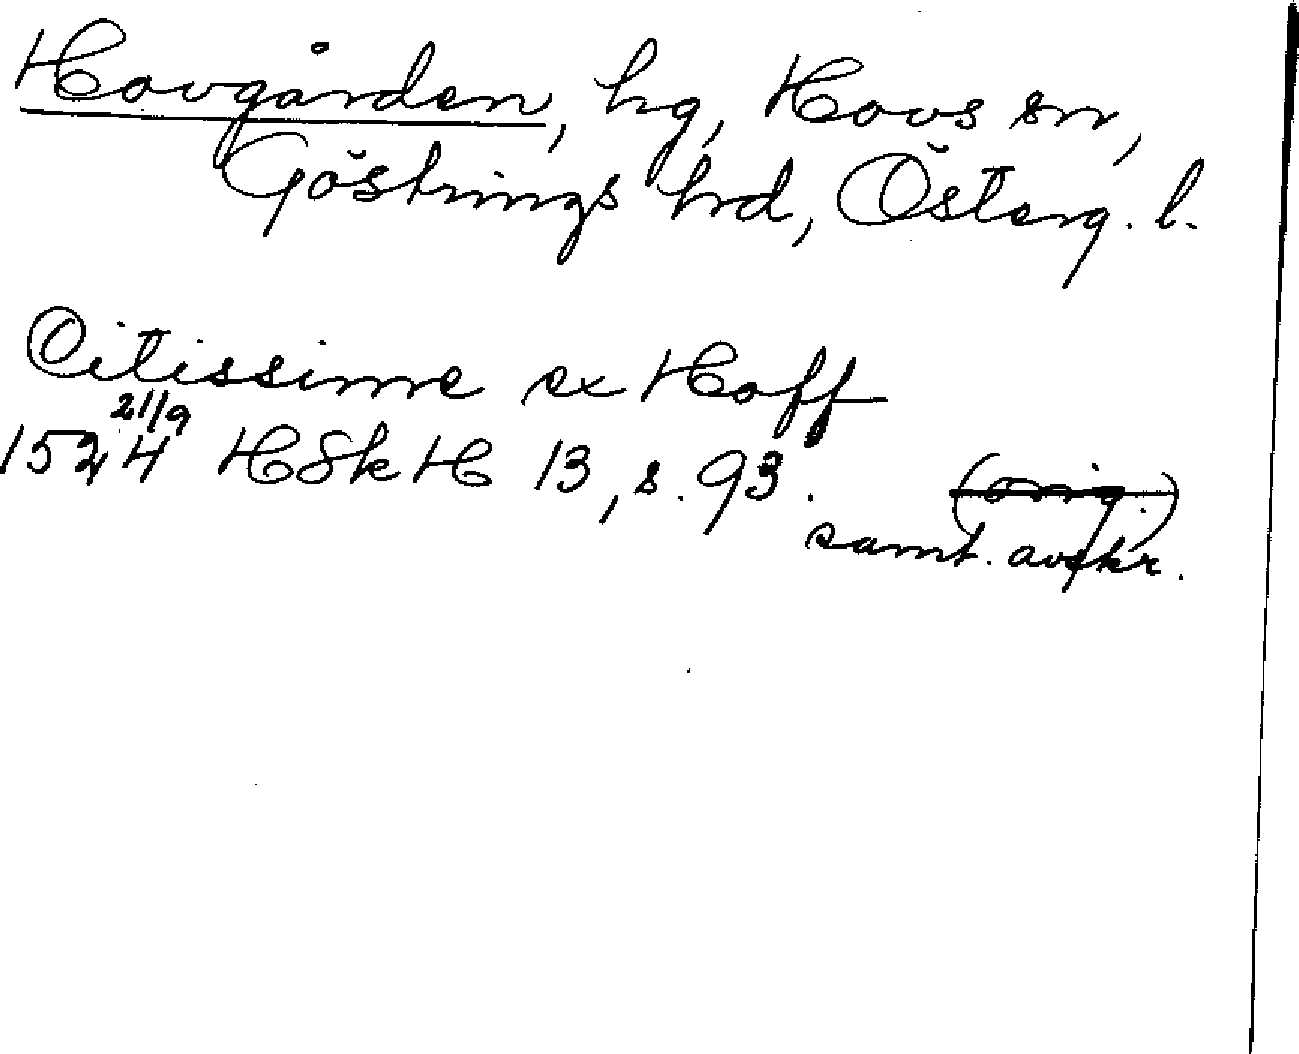 Hovgården, hg, Hovs sn,
Göstrings hrd, Österg. l.
Citissime ex Hoff
21/9
1524 HSkH 13, s. 93. (orig.)
samt. avskr.